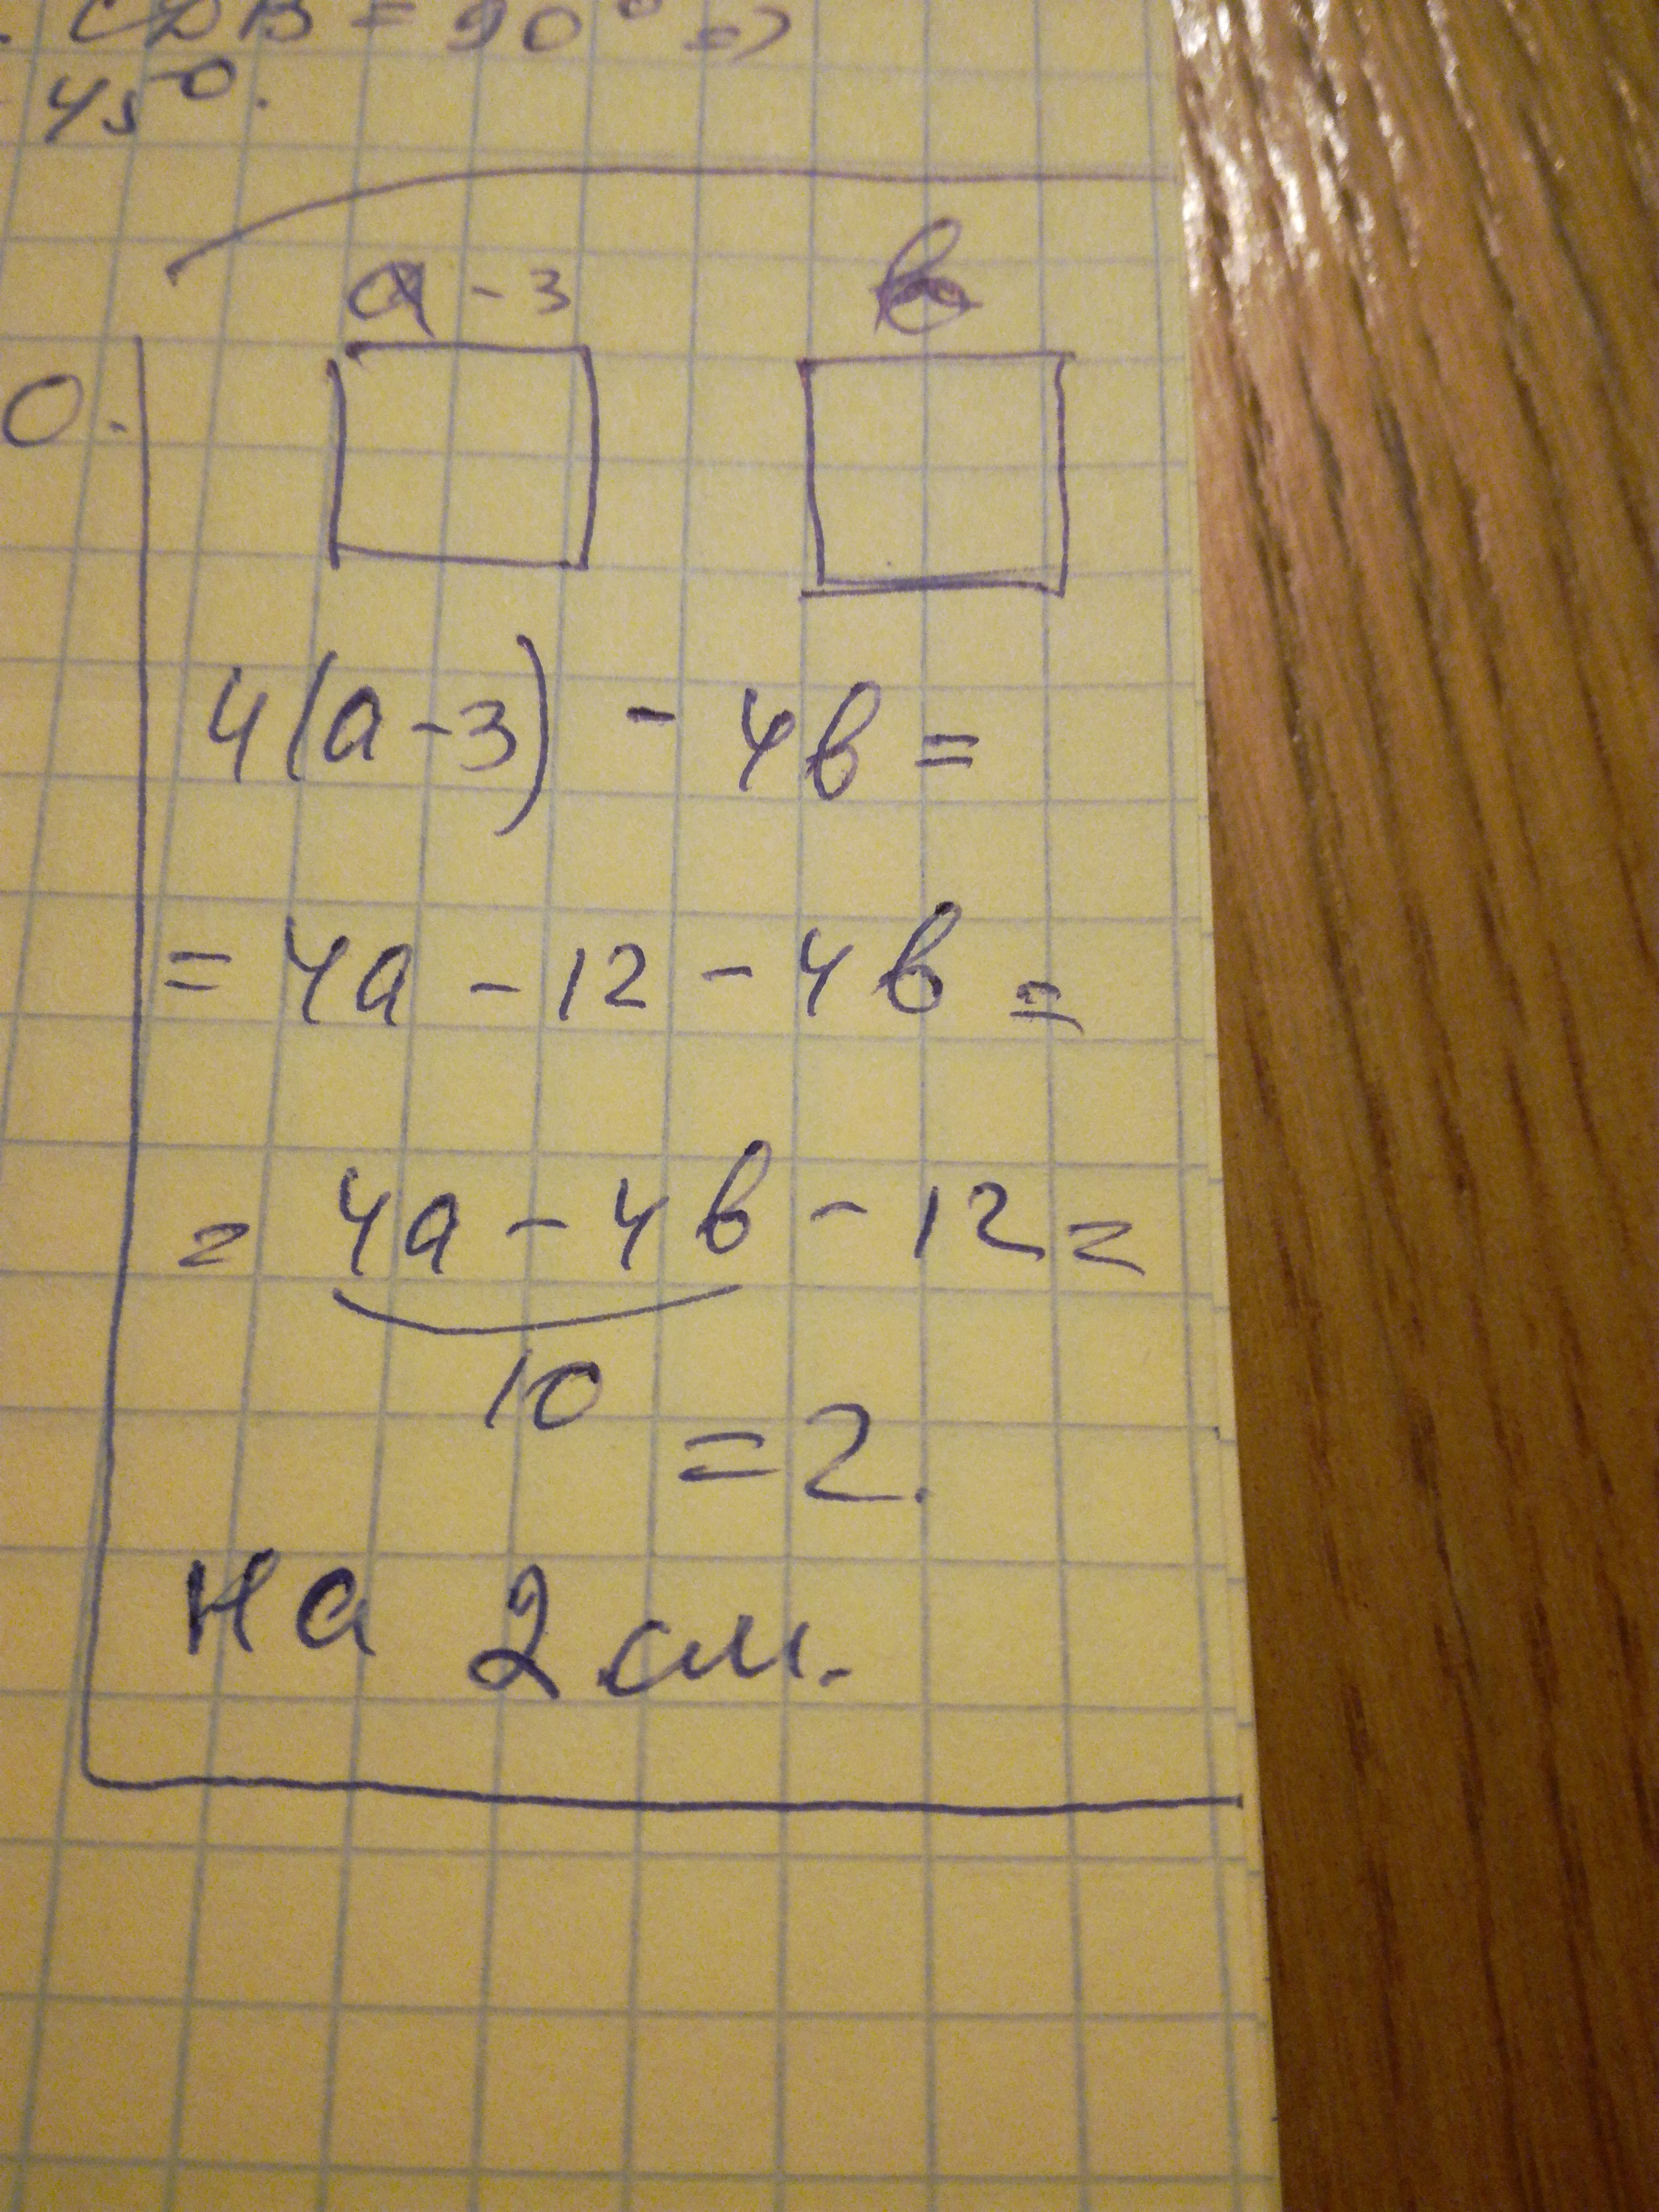 . CDB = 90° ⇒
45°.
a - 3 в
0.
4(a - 3) - 4в =
= 4a - 12 - 4в =
= 4a - 4в - 12 =
10
= 2.
на 2 см.